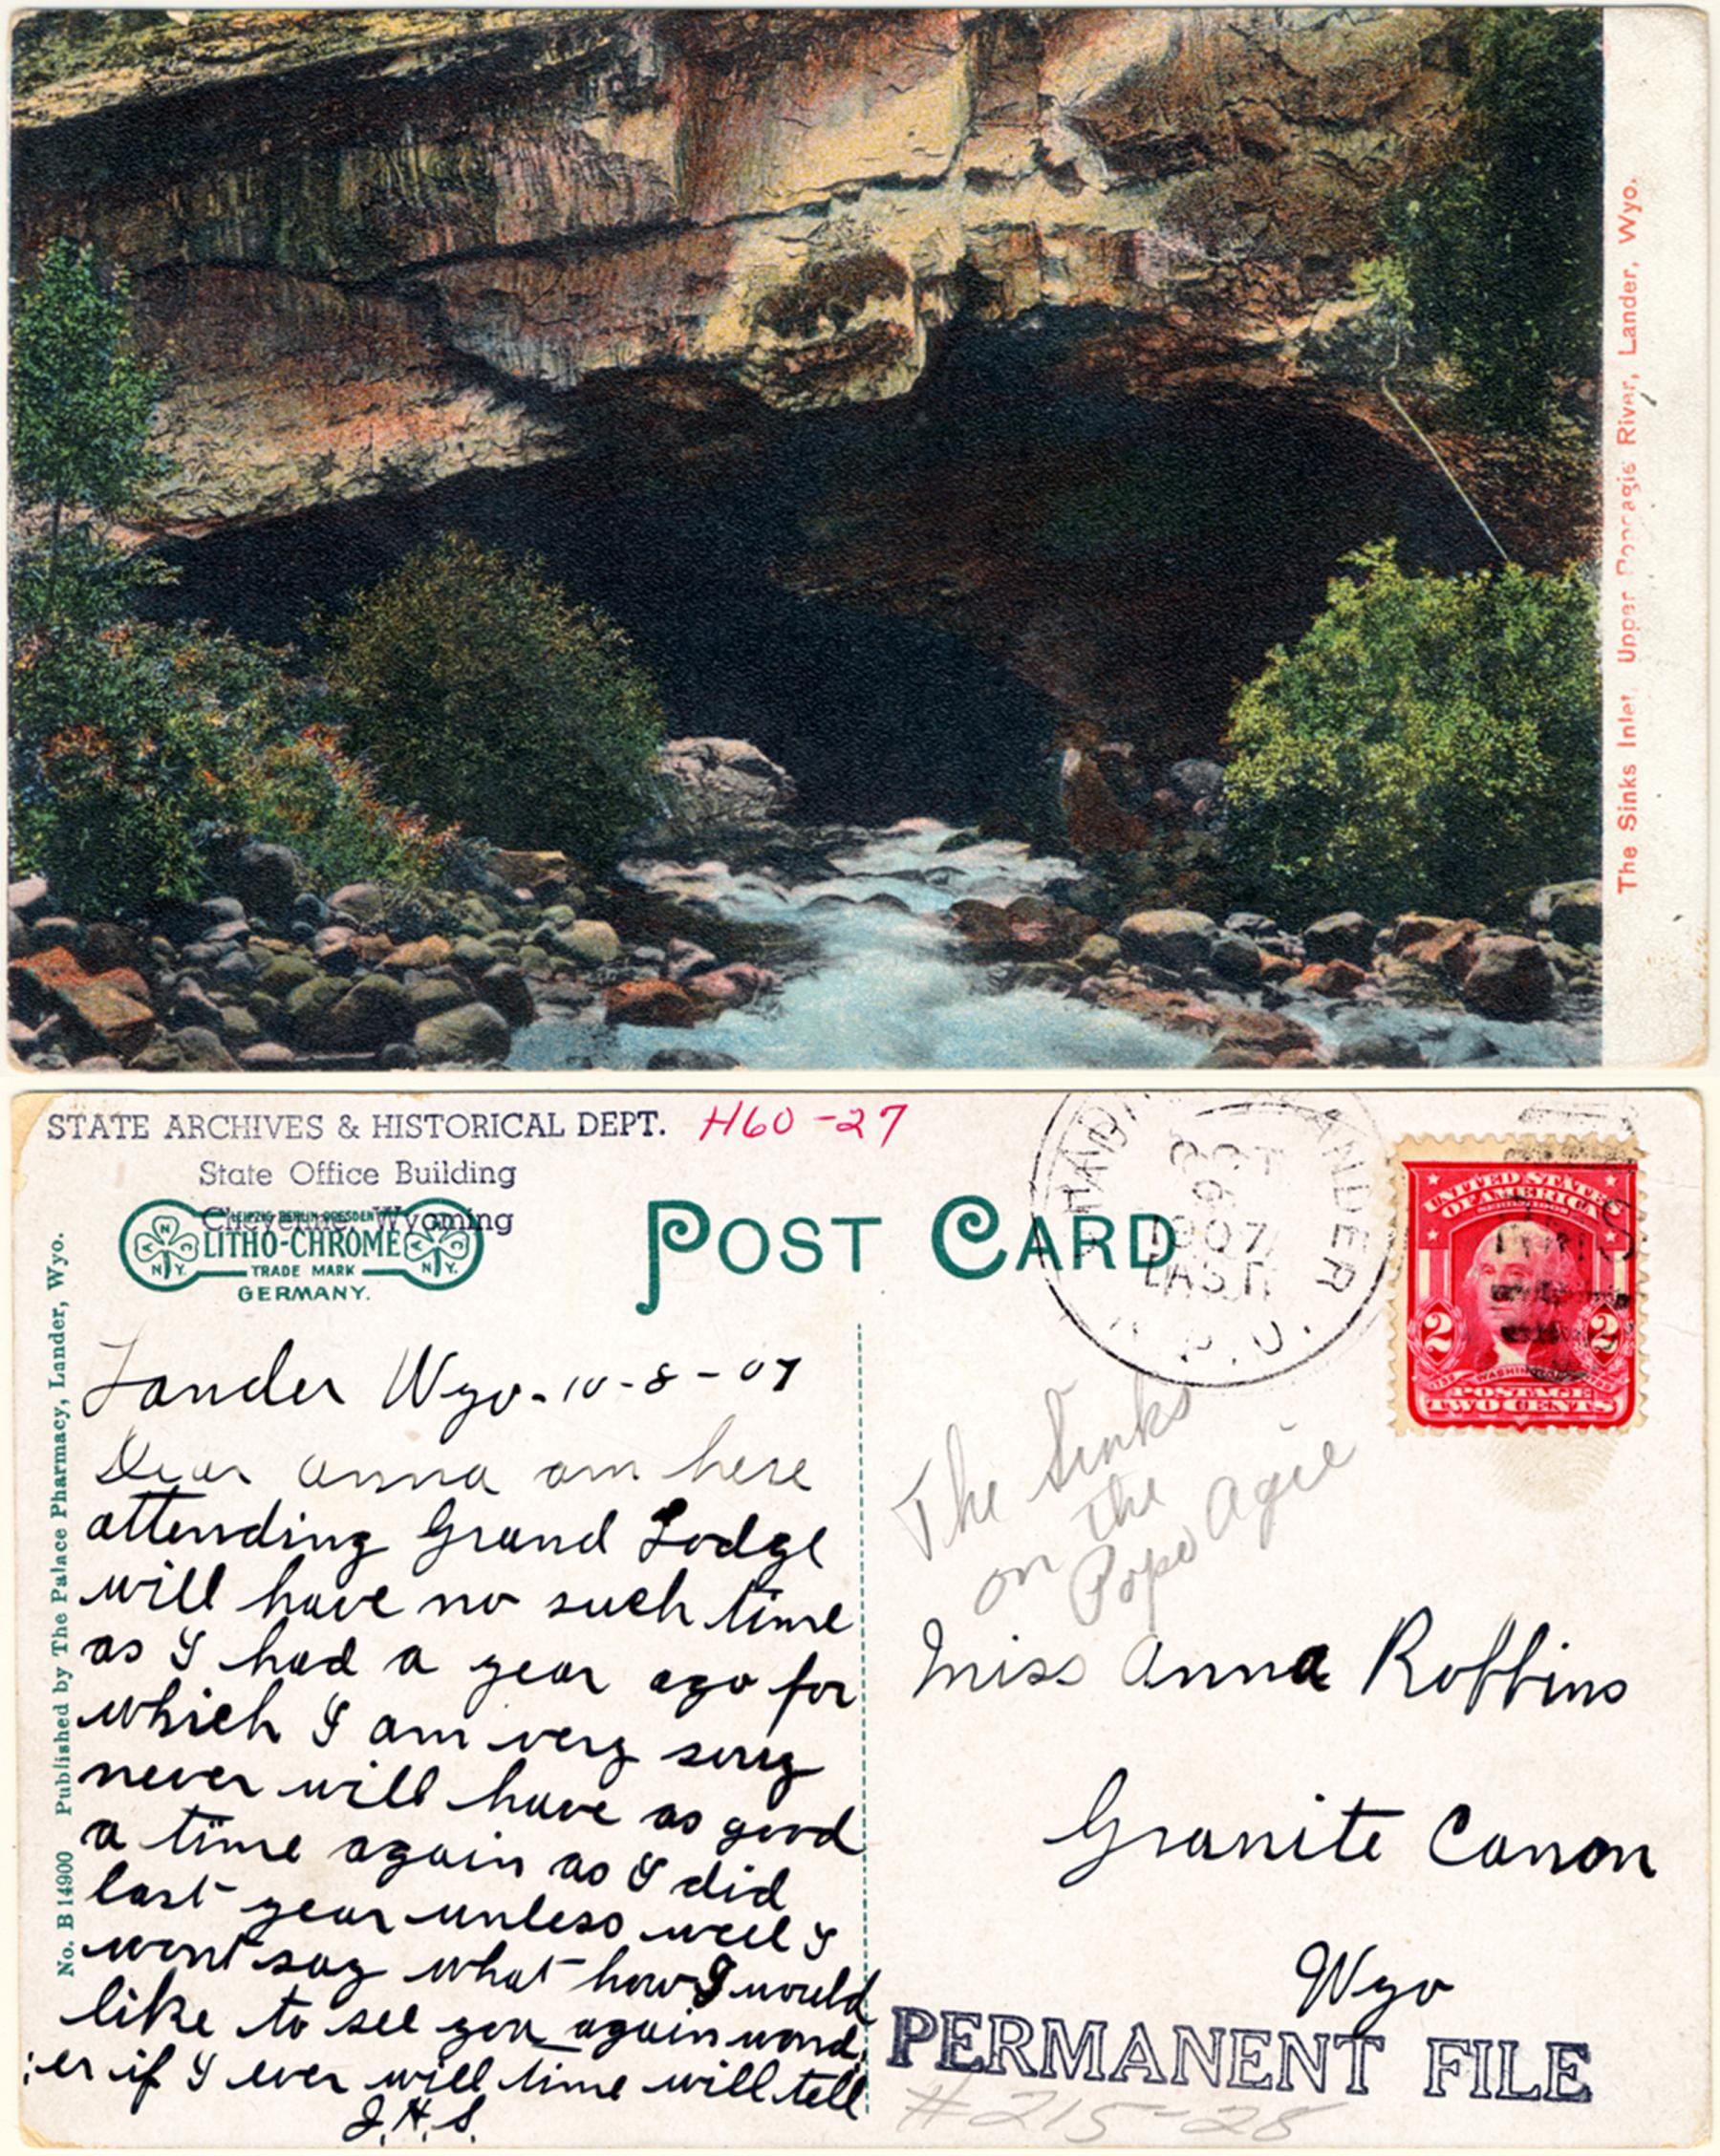 The Sinks Inlet Upper Popoagie River, Lander, Wyo.
STATE ARCHIVES & HISTORICAL DEPT. H60-27
State Office Building
Cheyenne, Wyoming
LEIPZIG BERLIN DRESDEN
LITHO-CHROME
N.Y. TRADE MARK N.Y.
GERMANY.
POST CARD
LANDER
OCT
1907
EAST
UNITED STATES
OF AMERICA
2 2
WASHINGTON
POSTAGE
TWO CENTS
No. B 14900 Published by The Palace Pharmacy, Lander, Wyo.
Lander Wyo-10-8-07
Dear Anna am here
attending Grand Lodge
will have no such time
as I had a year ago for
which I am very sorry
never will have as good
a time again as I did
last year unless well I
wont say what how I would
like to see you again wond,
:er if I ever will time will tell
J.H.S.
The Sinks
on the
Popo Agie
Miss Anna Robbins
Granite Canon
Wyo
PERMANENT FILE
#215-28